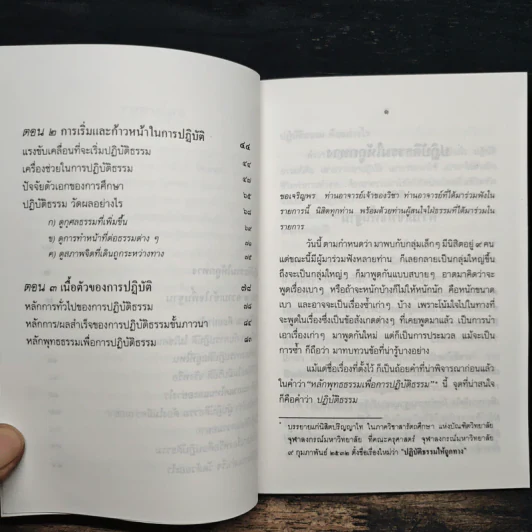 ตอน ๒ การเริ่มและก้าวหน้าในการปฏิบัติ ๔๔
แรงขับเคลื่อนที่จะเริ่มปฏิบัติธรรม ๔๔
เครื่องช่วยในการปฏิบัติธรรม ๔๗
ปัจจัยตัวเอกของการศึกษา ๕๘
ปฏิบัติธรรม วัดผลอย่างไร ๖๕
ก) ดูกุศลธรรมที่เพิ่มขึ้น
ข) ดูการทำหน้าที่ต่อธรรมต่าง ๆ
ค) ดูสภาพจิตที่เดินถูกระหว่างทาง
ตอน ๓ เนื้อตัวของการปฏิบัติ ๗๘
หลักการทั่วไปของการปฏิบัติธรรม ๗๘
หลักการ/ผลสำเร็จของการปฏิบัติธรรมขั้นภาวนา
หลักพุทธธรรมเพื่อการปฏิบัติธรรม
ขอเจริญพร ท่านอาจารย์เจ้าของวิชา ท่านอาจารย์ที่ได้มาร่วมฟังใน
รายการนี้ นิสิตทุกท่าน พร้อมด้วยท่านผู้สนใจใฝ่ธรรมที่ได้มาร่วมใน
รายการ
วันนี้ ตามกำหนดว่า มาพบกับกลุ่มเล็กๆ มีนิสิตอยู่ ๙ คน
แต่ขณะนี้มีผู้มาร่วมฟังหลายท่าน ก็เลยกลายเป็นกลุ่มใหญ่ขึ้น
ถึงจะเป็นกลุ่มใหญ่ๆ ก็มาพูดกันแบบสบายๆ อาตมาคิดว่าจะ
พูดเรื่องเบาๆ หรือถ้าจะหนักบ้างก็ไม่ให้หนักนัก คือหนักขนาด
เบา และอาจจะเป็นเรื่องซ้ำเก่าๆ บ้าง เพราะโน้มใจไปในทางที่
จะพูดในเรื่องซึ่งเป็นข้อสังเกตต่างๆ ที่เคยพูดมาแล้ว เป็นการนำ
เอาเรื่องเก่าๆ มาพูดกันใหม่ แต่ก็เป็นการประมวล แม้จะเป็น
การซ้ำ ก็ถือว่า มาทบทวนข้อที่น่ารู้บางอย่าง
แม้แต่ชื่อเรื่องที่ตั้งไว้ ก็เป็นถ้อยคำที่น่าพิจารณาก่อนแล้ว
ในคำว่า “หลักพุทธธรรมเพื่อการปฏิบัติธรรม”* นี้ จุดที่น่าสนใจ
ก็คือคำว่า ปฏิบัติธรรม
* บรรยายแก่นิสิตปริญญาโท ในภาควิชาสารัตถศึกษา แห่งบัณฑิตวิทยาลัย
จุฬาลงกรณ์มหาวิทยาลัย ที่คณะครุศาสตร์ จุฬาลงกรณ์มหาวิทยาลัย
๙ กุมภาพันธ์ ๒๕๓๒ ตั้งชื่อเรื่องใหม่ว่า “ปฏิบัติธรรมให้ถูกทาง”